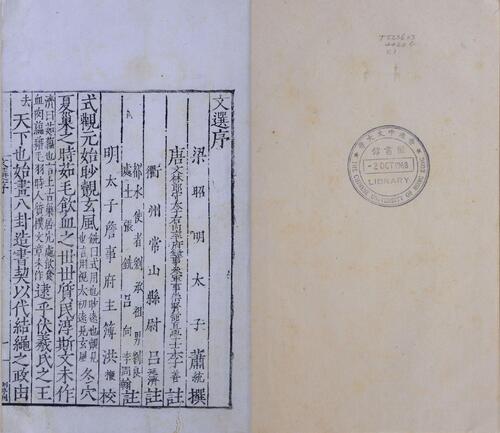 文選序
梁 昭 明 太 子 蕭統 撰
唐 文林郎守太子右內率府錄事參軍事崇賢館直學士李善 註
衢 州 常 山 縣 尉 呂延濟
都水使者劉承祖男劉良
處士 張銑 呂向 李周翰 註
明 太 子 詹 事 府 主 簿 洪楩 校
式觀元始眇覿玄風 銑曰式用也眇遠也覿見
冬穴
夏巢之時茹毛飲血之世世質民淳斯文未作
逮乎伏羲氏之王
天下也始畫八卦造書契以代結繩之政由
去
文選序
THE CHINESE UNIVERSITY OF HONG KONG
香港中文大學
圖書館
-2 OCT 1968
LIBRARY